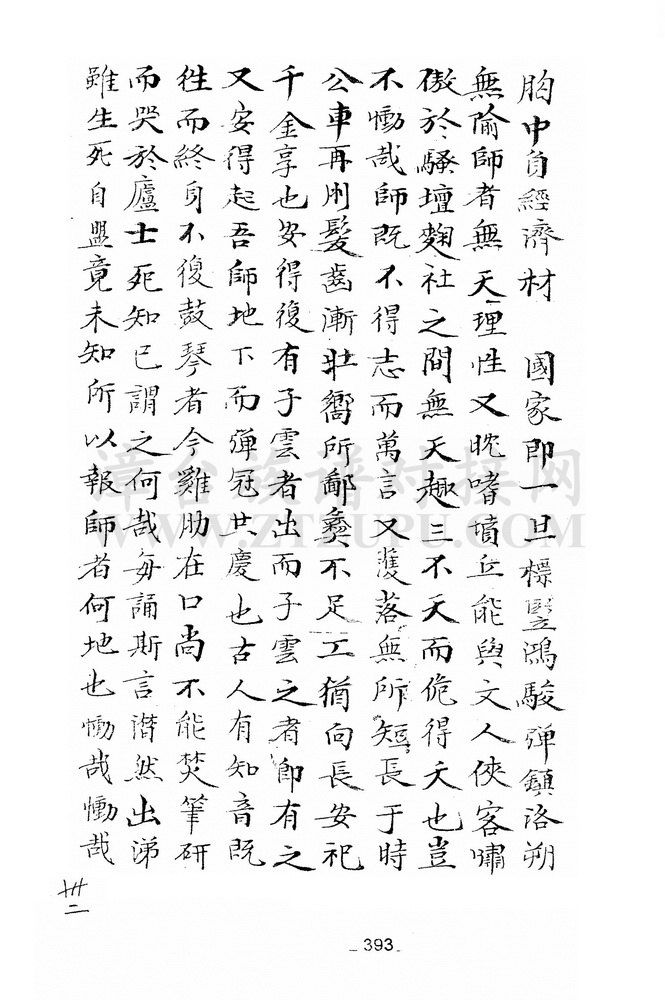 胸中負經濟材　國家即一旦標豎鴻駿弹鎮洛朔
無隃師者無天理性又眈嗜墳丘能與文人俠客嘯
傲於騷壇麴社之間無天趣三不天而佹得天也豈
不慟哉師既不得志而萬言又濩落無所短長于時
公車再刖髮齒漸壯嚮所鄙彛不足工猶向長安祀
千金享也安得復有子雲者出而子雲之者即有之
又安得起吾師地下而彈冠共慶也古人有知音既
徃而終身不復鼓琴者今雞肋在口尚不能焚筆研
而哭於廬士死知已謂之何哉每誦斯言潸然出涕
雖生死自盟竟未知所以報師者何地也慟哉慟哉
卅二
393
潭台族谱对接网
WWW.ZTZUPU.COM